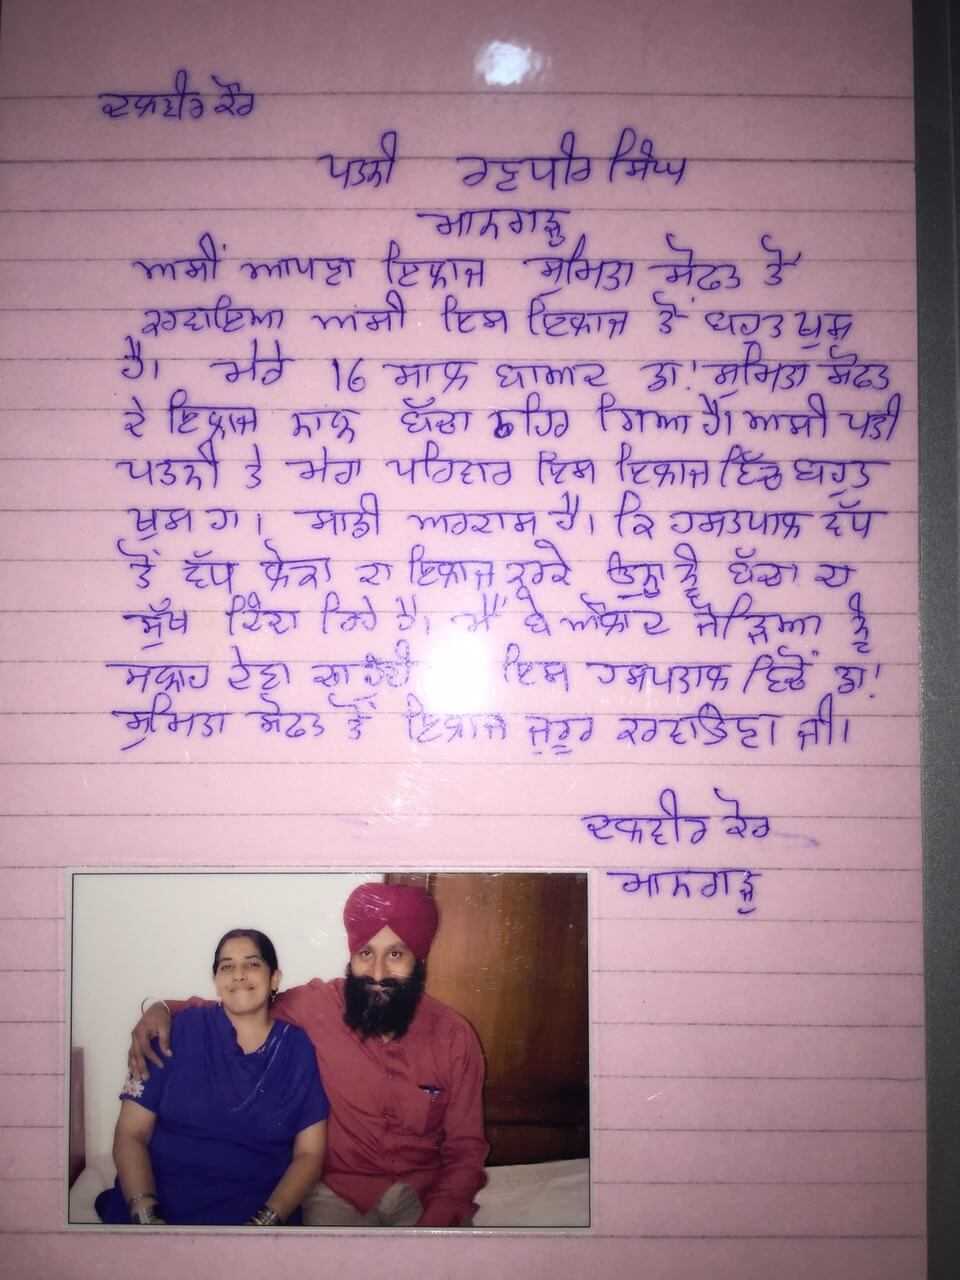 ਦਲਵੀਰ ਕੌਰ
ਪਤਨੀ ਰਣਧੀਰ ਸਿੰਘ
ਮਾਨਗੜ੍ਹ
ਅਸੀਂ ਆਪਣਾ ਇਲਾਜ ਸੁਮਿਤਾ ਸੋਫਤ ਤੋਂ
ਕਰਵਾਇਆ ਅਸੀ ਇਸ ਇਲਾਜ ਤੋਂ ਬਹੁਤ ਖੁਸ਼
ਹੈ। ਮੇਰੇ 16 ਸਾਲ ਬਾਅਦ ਡਾ: ਸੁਮਿਤਾ ਸੋਫਤ
ਦੇ ਇਲਾਜ ਨਾਲ ਬੱਚਾ ਠਹਿਰ ਗਿਆ ਹੈ। ਅਸੀ ਪਤੀ
ਪਤਨੀ ਤੇ ਮੇਰਾ ਪਰਿਵਾਰ ਇਸ ਇਲਾਜ ਵਿੱਚ ਬਹੁਤ
ਖੁਸ਼ ਹਾ। ਸਾਡੀ ਅਰਦਾਸ ਹੈ। ਕਿ ਹਸਤਪਾਲ ਵੱਧ
ਤੋਂ ਵੱਧ ਲੋਕਾ ਦਾ ਇਲਾਜ ਕਰਕੇ ਉਨ੍ਹਾ ਨੂੰ ਬੱਚਾ ਦਾ
ਸੁੱਖ ਦਿੰਦਾ ਰਿਹੇ ਹੈ। ਮੈਂ ਬੇਔਲਾਦ ਜੋੜਿਆ ਨੂੰ
ਸਲਾਹ ਦੇਣਾ ਚਾਹੁੰਦੀ ਇਸ ਹਸਪਤਾਲ ਵਿੱਚੋਂ ਡਾ:
ਸੁਮਿਤਾ ਸੋਫਤ ਤੋਂ ਇਲਾਜ ਜ਼ਰੂਰ ਕਰਵਾਉਣਾ ਜੀ।
ਦਲਵੀਰ ਕੌਰ
ਮਾਨਗੜ੍ਹ